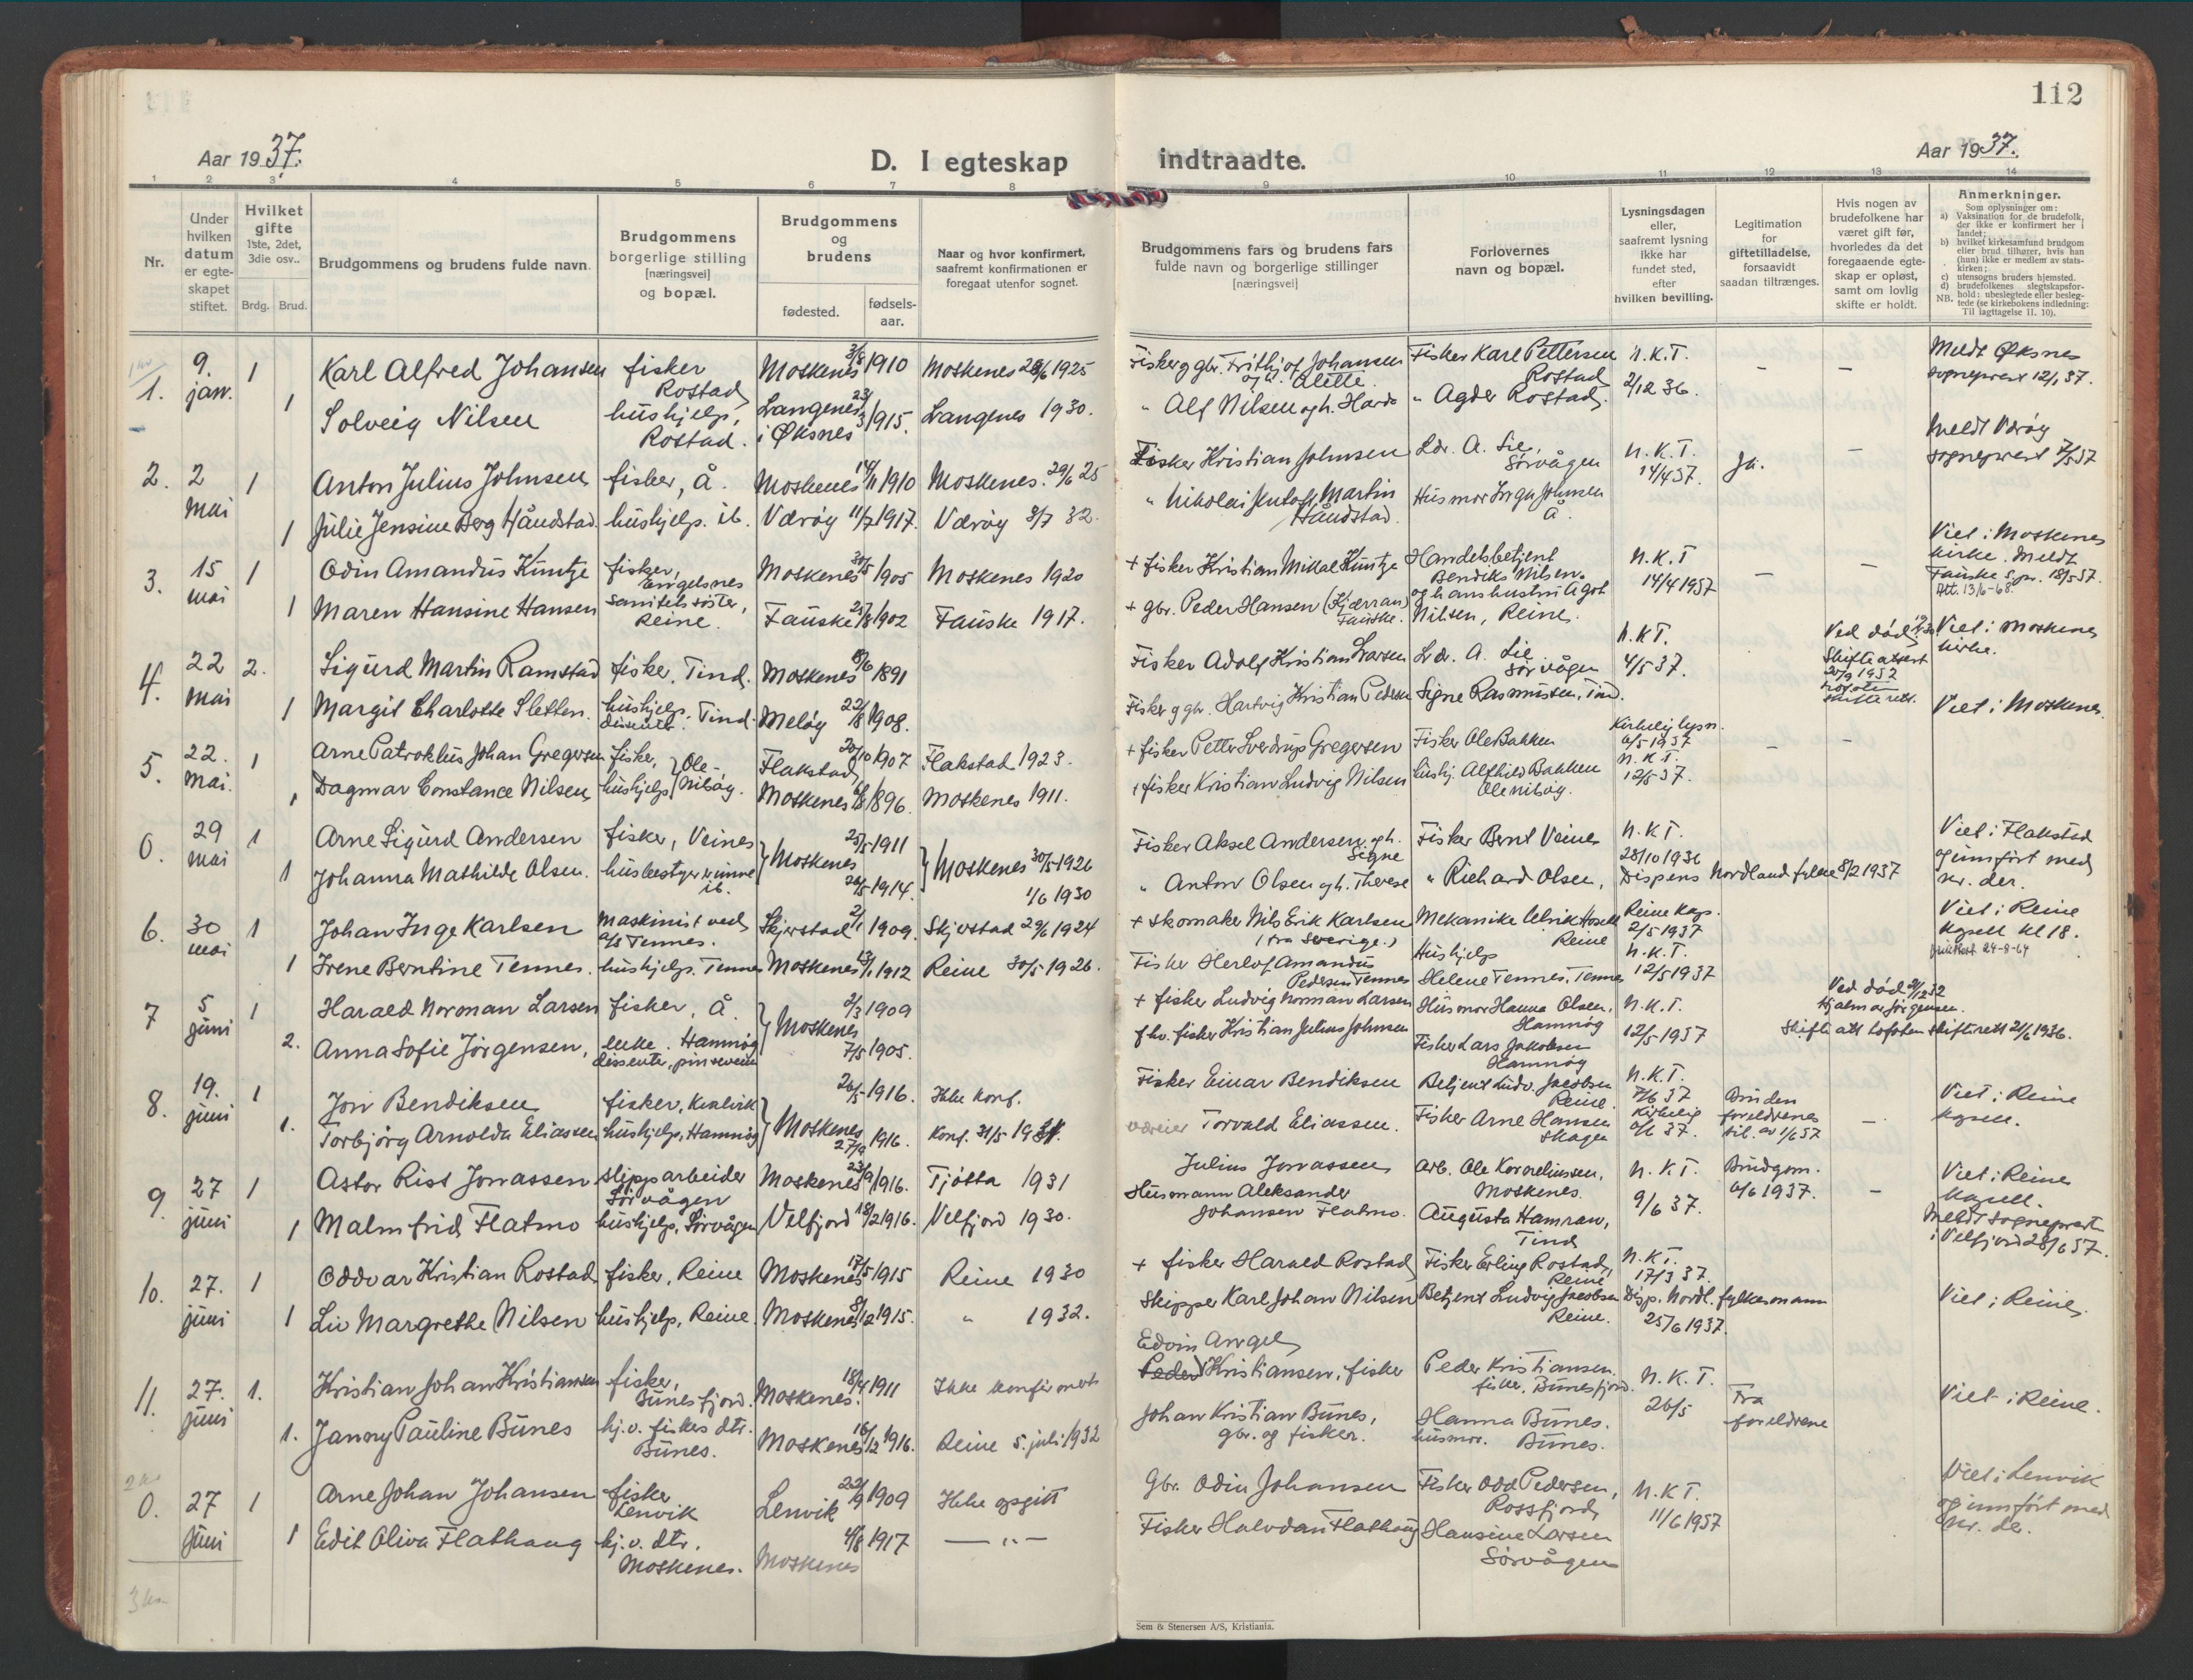 112
Aar 1937.
D. I egteskap
indtraadte.
Aar 1937.
1 2 3 4 5 6 7 8 9 10 11 12 13 14
Nr.
Under hvilken datum er egte-skapet stiftet.
Hvilket gifte 1ste, 2det, 3die osv..
Brdg. Brud.
Brudgommens og brudens fulde navn.
Brudgommens borgerlige stilling [næringsvei] og bopæl.
Brudgommens og brudens
fødested.
fødsels-aar.
Naar og hvor konfirmert, saafremt konfirmationen er foregaat utenfor sognet.
Brudgommens fars og brudens fars fulde navn og borgerlige stillinger [næringsvei]
Forlovernes navn og bopæl.
Lysningsdagen eller, saafremt lysning ikke har fundet sted, efter hvilken bevilling.
Legitimation for giftetilladelse, forsaavidt saadan tiltrænges.
Hvis nogen av brudefolkene har været gift før, hvorledes da det foregaaende egte-skap er opløst, samt om lovlig skifte er holdt.
Anmerkninger.
Som oplysninger om:
a) Vaksination for de brudefolk, der ikke er konfirmert her i landet;
b) hvilket kirkesamfund brudgom eller brud tilhører, hvis han (hun) ikke er medlem av stats-kirken;
c) utensogns bruders hjemsted.
d) brudefolkenes slegtskapsfor-hold: ubeslegtede eller besleg-tede (se kirkebokens indledning: Til iagttagelse II. 10).
NB.
1. 9. jan. 1 Karl Alfred Johansen fisker Rostad Moskenes 3/8 1910 Moskenes 28/6 1925 Fisker g gbr. Frithjof Johansen og h. Alette. Fisker Karl Pettersen Rostad N.K.T. 2/12 36. — — Meldt Øksnes sogneprest 12/1 37.
1 Solveig Nilsen hushjelp, Rostad. Langenes i Øksnes 23/3 1915. Langenes 1930. " Alf Nilsen og h. Harda " Agder Rostad.
2. 2 mai 1 Anton Julius Johnsen fisker, Å. Moskenes 14/11 1910 Moskenes. 29/6 25 Fisker Kristian Johnsen Ldr. A. Lie, Sørvågen N.K.T. 14/4 37. Ja. — Meldt Værøy sogneprest 7/5 37
1 Julie Jensine Berg Håndstad. hushjelp. ib. Værøy 11/7 1917. Værøy 3/7 32. " Nikolai Martin Håndstad. Husmor Inga Johnsen Å.
3. 15 mai 1 Odin Amandus Kuntze fisker, Engelsnes Moskenes 30/5 1905 Moskenes 1920 + fisker Kristian Mikal Kuntze Handelsbetjent Bendiks Nilsen N.K.T 14/4 1937 — — Viet i Moskenes kirke. Meldt Fauske spr. 18/5 37. Att. 13/6-68.
1 Maren Hansine Hansen Sanitetssøster, Reine. Fauske 25/8 1902 Fauske 1917. + gbr. Peder Hansen (Kjærran) Fauske. og hans hustru Agot Nilsen, Reine.
4. 22 mai 2. Sigurd Martin Ramstad fisker, Tind. Moskenes 8/6 1891 Fisker Adolf Kristian Larsen Ldr. A. Lie Sørvågen N.K.T. 4/5 37. Ved død Viet i Moskenes kirke.
1 Margit Charlotte Sletten. hushjelp, Tind. dissenter. Meløy 22/8 1908. Fisker g gbr. Hartvig Kristian Pedersen Signe Rasmussen, Tind.
5. 22. mai. 1 Arne Patroklus Johan Gregersen fisker, Ole-Nilsøy. Flakstad 20/10 1907 Flakstad 1923. + fisker Petter Sverdrup Gregersen Fisker Ole Bakken Kirkelig lysn. 6/5 1937 — — Viet i Moskenes.
1 Dagmar Constance Nilsen hushjelp Moskenes 6/8 1896. Moskenes 1911. + fisker Kristian Ludvig Nilsen hushj. Alfhild Bakken Olenilsøy. N.K.T. 12/5 37.
0. 29 mai 1 Arne Sigurd Andersen fisker, Veines Moskenes 25/5 1911 Moskenes 30/5 1926 Fisker Aksel Andersen og h. Signe Fisker Bernt Veines N.K.T. 28/10 1936 Viet i Flakstad og innført med nr. der.
1 Johanna Mathilde Olsen. husbestyrerinne ib. 26/5 1914. 1/6 1930 " Anton Olsen og h. Therese " Richard Olsen, Dispens Nordland fylke 8/2 1937
6. 30 mai 1 Johan Inge Karlsen Maskinist ved a/s Tennes. Skjerstad 2/1 1909. Skjerstad 29/6 1924 + skomaker Nils Erik Karlsen (fra Sverige.) Mekaniker Ulrik Reine Reine kap. 2/5 1937 Viet i Reine kapell kl 18.
1 Irene Berntine Tennes. hushjelp. Tennes Moskenes 13/1 1912 Reine 30/5 1926. Fisker Herlof Amandus Pedersen Tennes Hushjelp Helene Tennes, Tennes N.K.T. 12/5 1937
7 5 juni 1 Harald Norman Larsen fisker, Å. Moskenes 2/3 1909 + fisker Ludvig Norman Larsen Husmor Hanna Olsen, Hamnøy N.K.T. 12/5 1937 Ved død 2/12 32 Hjalmar Jørgensen.
2. Anna Sofie Jørgensen, enke. Hamnøy dissenter, pinsevenn 7/5 1905. fhv. fisker Kristian Julius Johnsen Fisker Lars Jakobsen Hamnøy Skifte att Lofoten skifterett 21/6 1936.
8. 19. juni 1 Jon Bendiksen fisker, Kvalvik Moskenes 26/5 1916. Ikke konf. Fisker Einar Bendiksen Betjent Ludv. Jacobsen Reine. N.K.T. 7/6 37 Bruden foreldrenes til. av 1/6 37 — Viet i Reine kapell.
1. Torbjørg Arnolda Eliassen hushjelp, Hamnøy 27/9 1916. Konf. 31/5 1931. væreier Torvald Eliassen. Fisker Arne Hansen Skagen Kirkelig 6/6 37.
9. 27 juni 1 Astor Rist Jonassen slipparbeider Sørvågen Moskenes 23/9 1916. Tjøtta 1931 Julius Jonassen Arb. Ole Korneliussen, Moskenes. N.K.T. 9/6 37. Brudgom. 6/6 1937. — Viet i Reine kapell.
1 Malmfrid Flatmo hushjelp, Sørvågen Velfjord 18/2 1916. Velfjord 1930. Husmann Aleksander Johansen Flatmo. Augusta Hamran, Tind Meldt sogneprest i Velfjord 28/6 37.
10. 27. juni 1 Oddvar Kristian Rostad fisker, Reine Moskenes 17/5 1915 Reine 1930 + fisker Harald Rostad Fisker Erling Rostad, Reine N.K.T. 17/3 37. Viet i Reine.
1 Liv Margrethe Nilsen hushjelp, Reine. Moskenes 8/12 1915. " 1932. Skipper Karl Johan Nilsen Betjent Ludvig Jacobsen Reine. Disp. Nordl. fylkesmann 25/6 1937.
11. 27. juni 1. Kristian Johan Kristiansen fisker, Bunesfjord. Moskenes. 18/4 1911 Ikke konfirmert Edvin Angel Peder Kristiansen, fisker Peder Kristiansen. fisker. Bunesfjord. N.K.T. 26/5 Fra foreldrene Viet i Reine.
1. Janny Pauline Bunes hj.v. fiskers dtr. Bunes. Moskenes 16/12 1916. Reine 5. juli 1932 Johan Kristian Bunes, gbr. og fisker. Hanna Bunes. husmor. Bunes.
0. 27 juni 1 Arne Johan Johansen fisker Lenvik Lenvik 22/9 1909 Ikke opgitt Gbr. Odin Johansen Fisker Odd Pedersen, Rossfjord N.K.T. 11/6 1937 Viet i Lenvik og innført med nr. der.
1 Edit Oliva Flathaug hj.v. dtr. Moskenes. Moskenes 4/8 1917 — " — Fisker Halvdan Flathaug Hansine Larsen Sørvågen
Sem & Stenersen A/S, Kristiania.